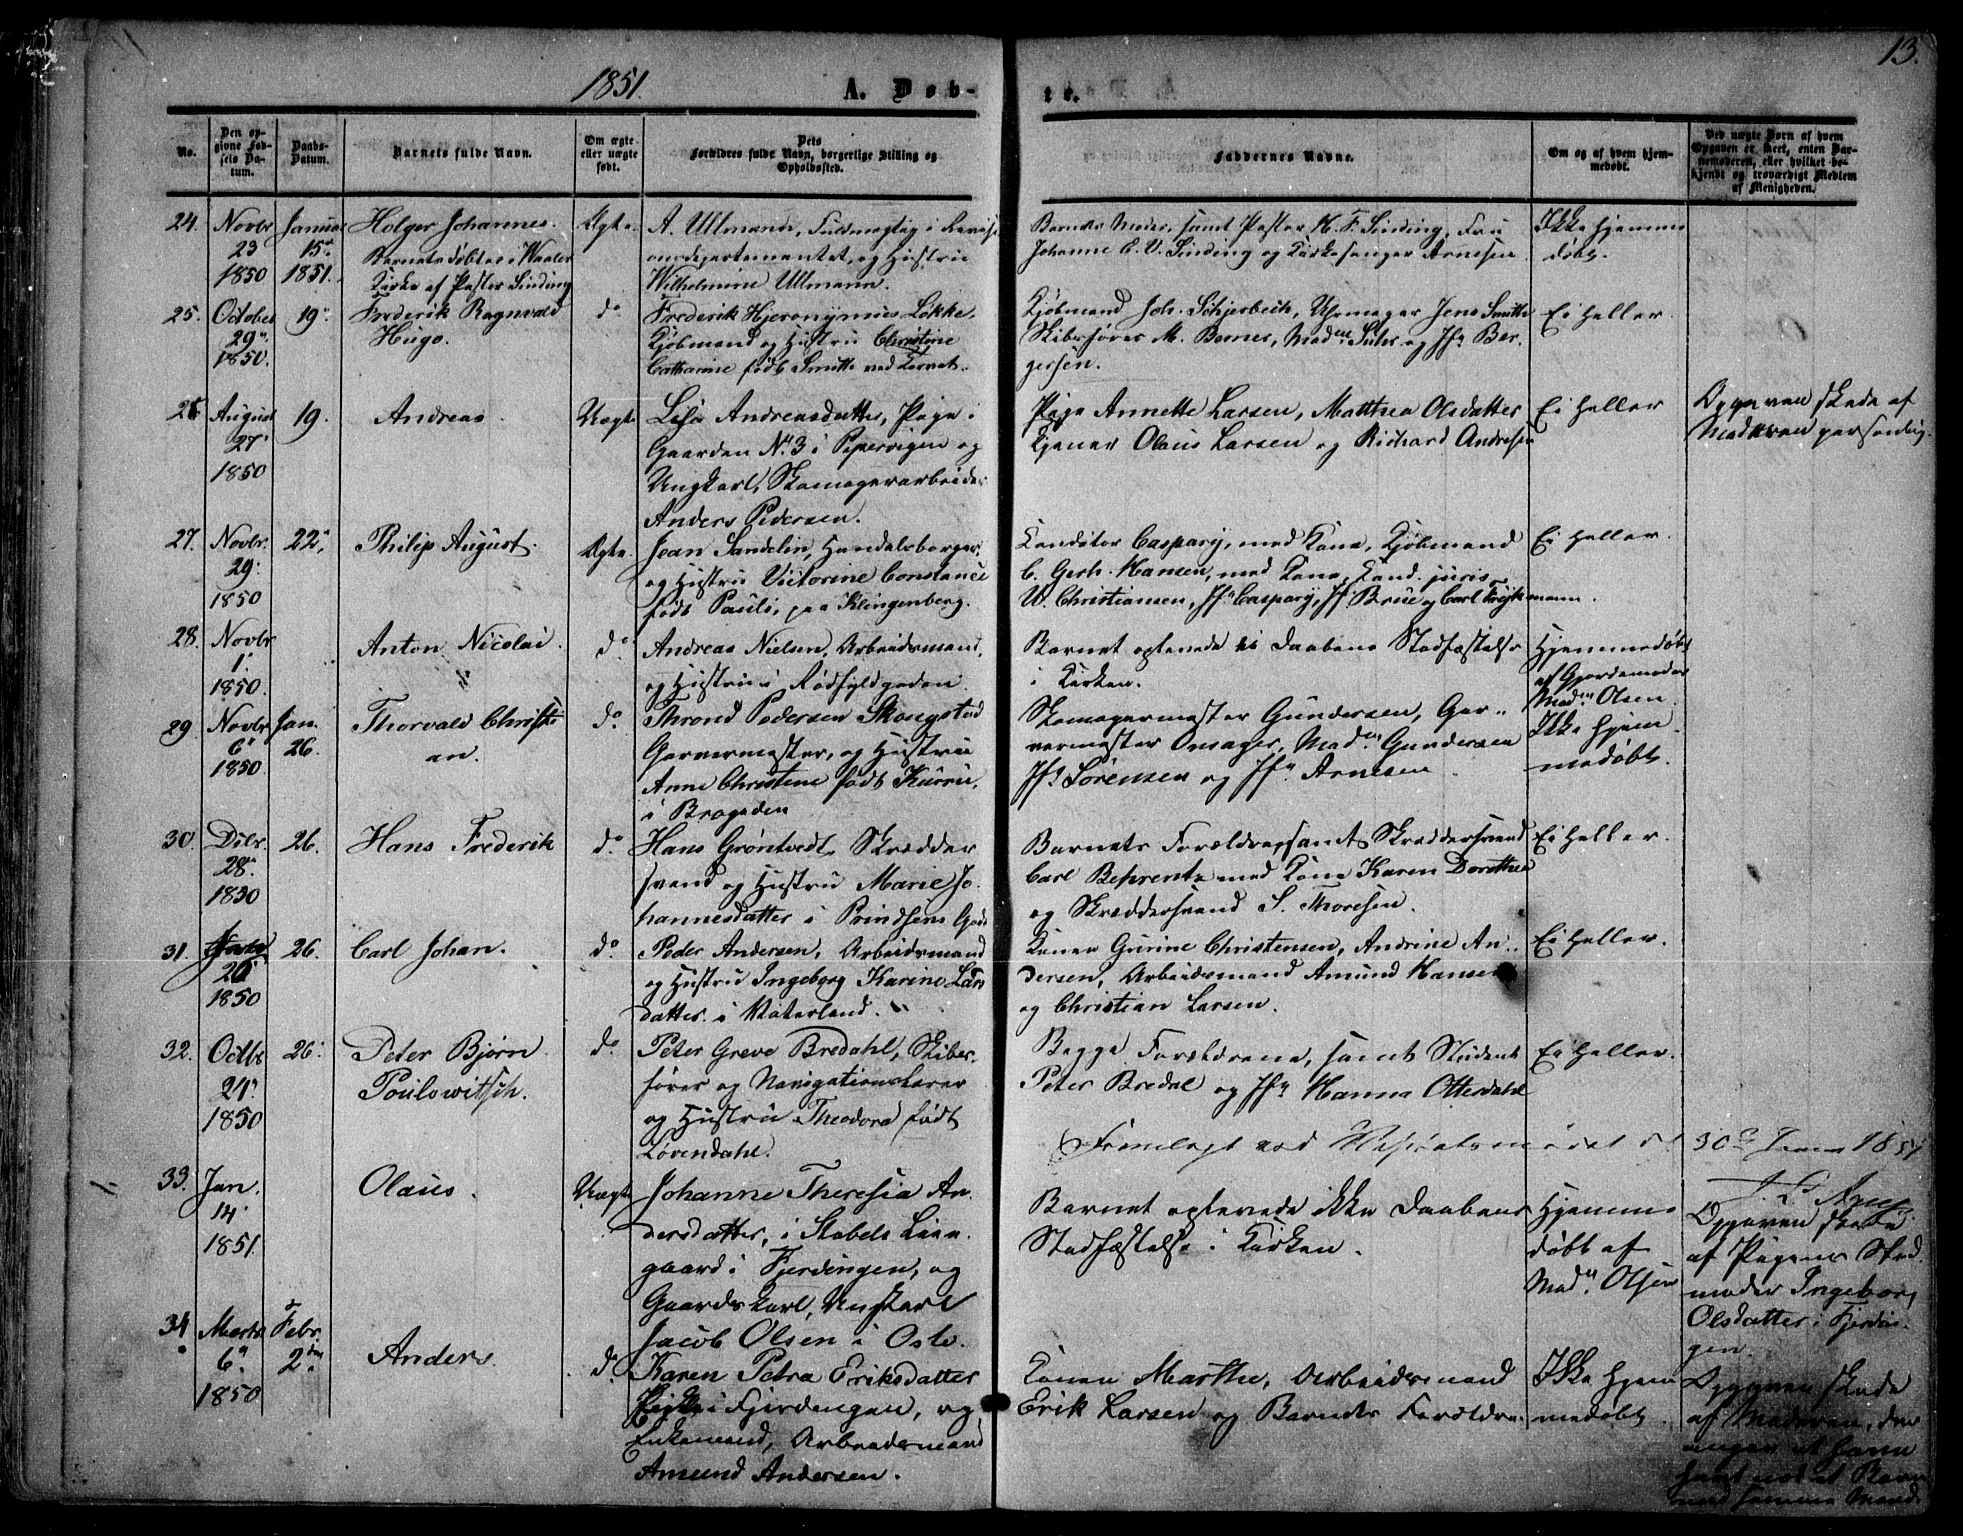 1851.
A. Døb-
te.
13.
No.
Den op-
givne Fød-
sels Da-
tum.
Daabs-
Datum.
Barnets fulde Navn.
Om ægte
eller uægte
født.
Dets
Forældres fulde Navn, borgerlige Stilling og
Opholdssted.
Faddernes Navne.
Om og af hvem hjem-
medøbt.
Ved uægte Børn af hvem
Opgaven er skeet, enten Bar-
nemoderen, eller hvilket be-
kjendt og troværdigt Medlem
af Menigheden.
24.
Novbr
23
1850
Januar
15de
1851.
Holger Johannes.
Barnet døbtes i Waaler
Kirke af Pastor Sinding
Ægte.
A. Ullmann, Fuldmægtig i Revisi
onsdepartementet, og Hustru
Wilhelmine Ullmann.
Barnets Moder, samt Pastor M. F. Sinding, Fru
Johanne C. V. Sinding og Kirkesanger Arnesen.
Ikke hjemme
døbt.
25.
October
29
1850.
19
Frederik Ragnvald
Hugo.
do
Frederik Hjeronymus Løkke,
Kjøbmand og Hustru Christine
Cathrine født Smith ved Torvet.
Kjøbmand Joh. Schjerbech, Uhrmager Jens Smith
Skibsfører M. Berner, Madm og Jfr Ber-
gersen.
Ei heller.
26
August
27
1850
19.
Andreas.
Uægte
Lisa Andreasdatter, Pige i
Gaarden No 3 i Pipervigen og
Ungkarl, Skomagerarbeider
Anders Pedersen.
Pige Annette Larsen, Matthea Olsdatter
Tjener Olaus Larsen og Richard Andresen
Ei heller
Opgaven skede af
Moderen personlig.
27.
Novbr.
29
1850
22
Philip August.
Ægte.
Jean Sandelin, Handelsborger,
og Hustru Victorine Constance
født Pauli, paa Klingenberg.
Conditor Caspary, med Kone, Kjøbmand
C. Gerh. Hansen, med Kone, Cand. juris
W. Christiansen, Jfr Caspary, Jfr Brue og Carl mann.
Ei heller.
28.
Novbr
1
1850.
Anton Nicolai.
do
Andreas Nielsen, Arbeidsmand,
og Hustru i Rødfyldgaden.
Barnet oplevede ei Daabens Stadfæstelse
i Kirken.
Hjemmedøbt
af Gjordemoder
Madm Olsen.
29.
Novbr
6
1850
Jan.
26.
Thorvald Christi
an.
do
Thrond Pedersen Skougstad
Garvermester, og Hustru
Anne Christine født
i Brogaden
Skomagermester Gundersen, Gar-
vermester Onsager, Madm Gundersen
Jfr Sørensen og Jfr Arnesen.
Ikke hjem
medøbt.
30.
Dcbr.
28
1850
26.
Hans Frederik
do
Hans Grøntvedt Skrædder
svend og Hustru Marie Jo-
hannesdatter i Prindsens Gade
Barnets Forældre, samt Skræddersvend
Carl Behrentz med Kone Karen Dorothea
og Skræddersvend S. Thoresen.
Ei heller.
31.
26
1850
26.
Carl Johan.
do
Peder Andersen, Arbeidsmand
og Hustru Ingeborg Karine Lars
datter i Vaterland.
Konen Gurine Christensen, Andrine An-
dersen, Arbeidsmand Amund Hansen
og Christian Larsen.
Ei heller.
32.
Octbr
24
1850
26
Peter Bjørn
Poulowitsch.
do
Peter Greve Bredahl, Skibs-
fører og Navigationslærer
og Hustru Theodora født
Løvendahl.
Begge Forældrene, samt Student
Peter Bredal og Jfr Hanna Ottesdahl
Ei heller.
Fremlagt ved 30 1851
33.
Jan.
14
1851.
Olaus.
Uægte
Johanne Theresia An-
dersdatter, i Stabels Løkke-
gaard i Fjerdingen, og
Gaardskarl, Ungkarl
Jacob Olsen i Oslo.
Barnet oplevede ikke Daabens
Stadfæstelse i Kirken.
Hjemme
døbt af
Madm Olsen
Opgaven skede
af Pigens Sted
moder Ingeborg
Olsdatter i Fjerdin-
gen.
34
Marts
6
1850
Febr.
2den
Anders.
do
Karen Petra Eriksdatter
Pige i Fjerdingen, og
Enkemand, Arbeidsmand
Amund Andersen.
Konen Marthe, Arbeidsmand
Erik Larsen og Barnets Forældre.
Ikke hjem
medøbt.
Opgaven skede
af Moderen, der